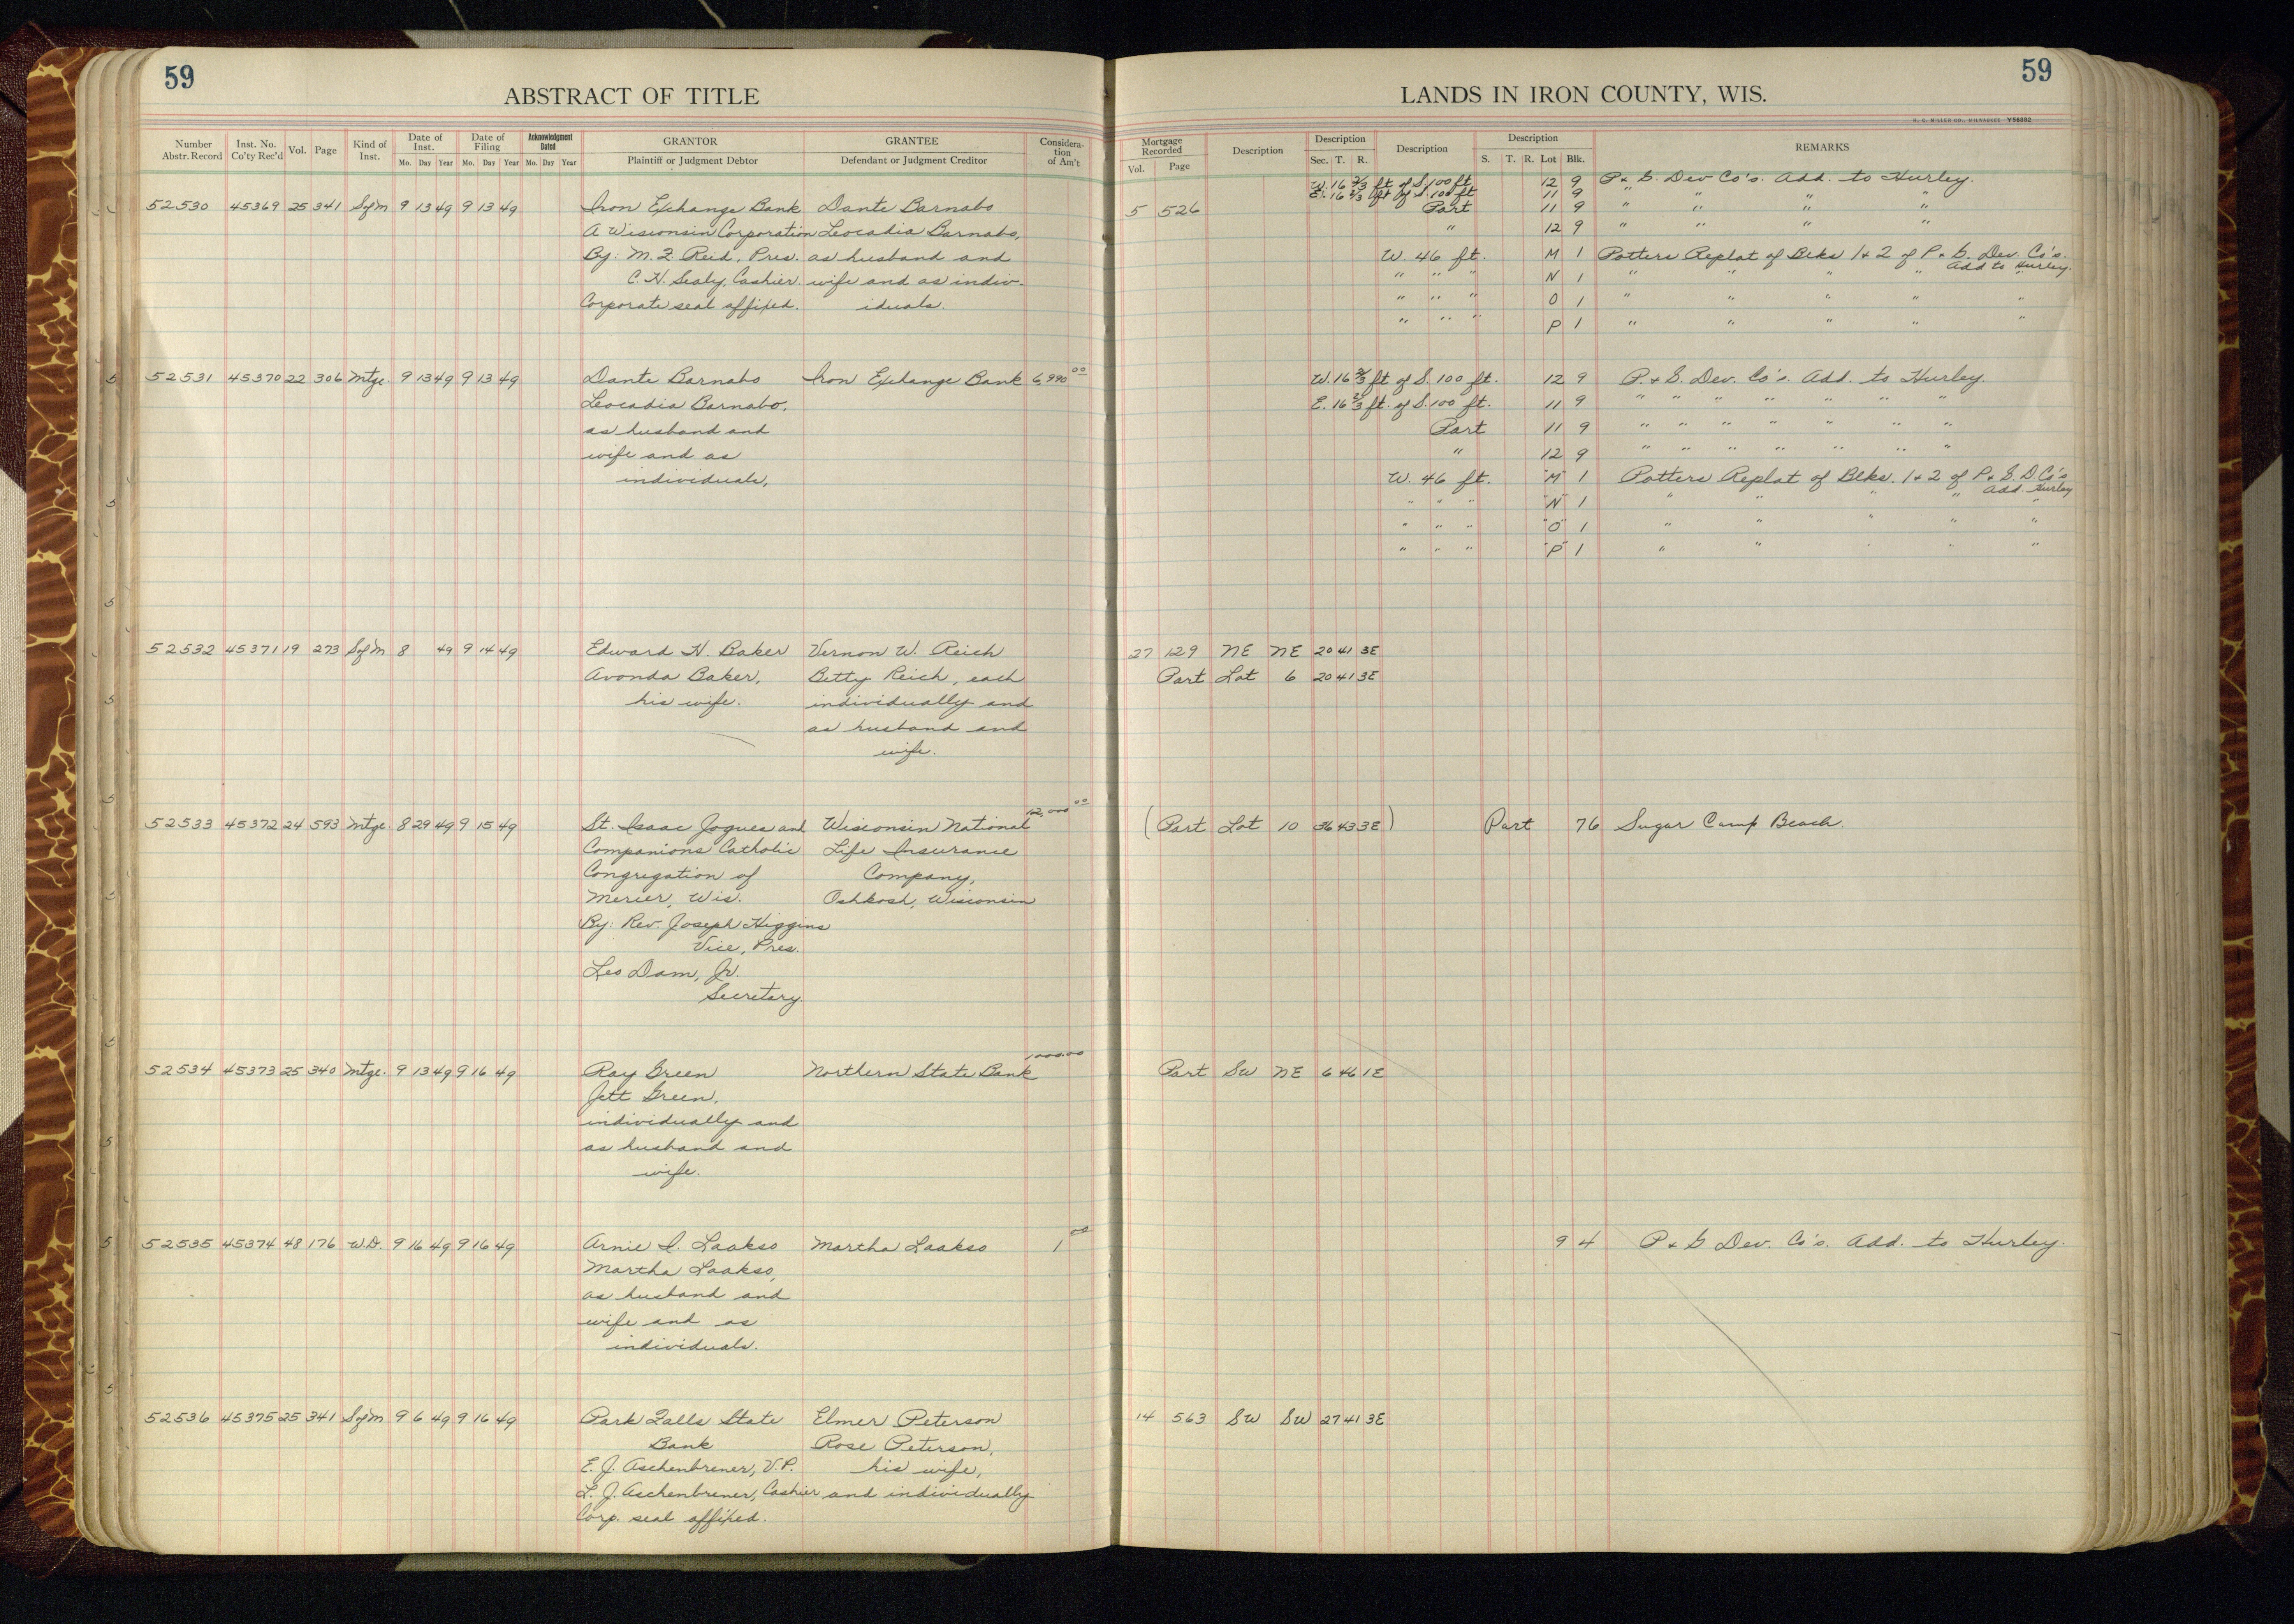 59
ABSTRACT OF TITLE
Number Abstr. Record Inst. No. Co'ty Rec'd Vol. Page Kind of Inst. Date of Inst. Mo. Day Year Date of Filing Mo. Day Year Acknowledgment Dated Mo. Day Year GRANTOR Plaintiff or Judgment Debtor GRANTEE Defendant or Judgment Creditor Considera-tion of Am't
52530 45369 25 341 SofM 9 13 49 9 13 49 Iron Exchange Bank Dante Barnabo
A Wisconsin Corporation Leocadia Barnabo,
By: M. J. Reid, Pres. as husband and
C. H. Sealy, Cashier. wife and as indiv-
Corporate seal affixed. iduals.
52531 45370 22 306 Mtge. 9 13 49 9 13 49 Dante Barnabo Iron Exchange Bank 6,990 00
Leocadia Barnabo,
as husband and
wife and as
individuals,
52532 45371 19 273 SofM 8 49 9 14 49 Edward H. Baker Vernon W. Reich
Avonda Baker, Betty Reich, each
his wife. individually and
as husband and
wife.
52533 45372 24 593 Mtge. 8 29 49 9 15 49 St. Isaac Jogues and Wisconsin National 12,000 00
Companions Catholic Life Insurance
Congregation of Company,
Mercer, Wis. Oshkosh, Wisconsin
By: Rev. Joseph Higgins
Vice, Pres.
Leo Dam, Jr.
Secretary.
52534 45373 25 340 Mtge. 9 13 49 9 16 49 Ray Green Northern State Bank 1000.00
Jett Green,
individually and
as husband and
wife.
52535 45374 48 176 W.D. 9 16 49 9 16 49 Arnie I. Laakso Martha Laakso 1 00
Martha Laakso,
as husband and
wife and as
individuals.
52536 45375 25 341 SofM 9 6 49 9 16 49 Park Falls State Elmer Peterson
Bank Rose Peterson,
E. J. Aschenbrener, V.P. his wife,
L. J. Aschenbrener, Cashier and individually
Corp. seal affixed.
59
LANDS IN IRON COUNTY, WIS.
H. C. MILLER CO., MILWAUKEE
Mortgage Recorded Vol. Page Description Description Sec. T. R. Description Description S. T. R. Lot Blk. REMARKS
W. 16 2/3 ft of S. 100 ft 12 9 P. & G. Dev Co's. Add. to Hurley.
E. 16 2/3 ft of S. 100 ft 11 9 " " " "
5 526 Part 11 9 " " " "
" 12 9 " " " "
W. 46 ft. M 1 Potters Replat of Blks 1 & 2 of P. & G. Dev. Co's.
Add to Hurley.
" " " N 1 " " " "
" " " O 1 " " " " "
" " " P 1 " " " " "
W. 16 2/3 ft of S. 100 ft. 12 9 P. & G. Dev. Co's. Add. to Hurley.
E. 16 2/3 ft. of S. 100 ft. 11 9 " " " " " " "
Part 11 9 " " " " " " "
" 12 9 " " " " " " "
W. 46 ft. "M" 1 Potters Replat of Blks. 1 & 2 of P. & G. D. Co's
Add. Hurley
" " " "N" 1 " " " " "
" " " "O" 1 " " " " "
" " " "P" 1 " " " " "
27 129 NE NE 20 41 3E
Part Lot 6 20 41 3E
(Part Lot 10 36 43 3E) Part 76 Sugar Camp Beach.
Part SW NE 6 46 1E
9 4 P & G Dev. Co's. Add. to Hurley.
14 563 SW SW 27 41 3E